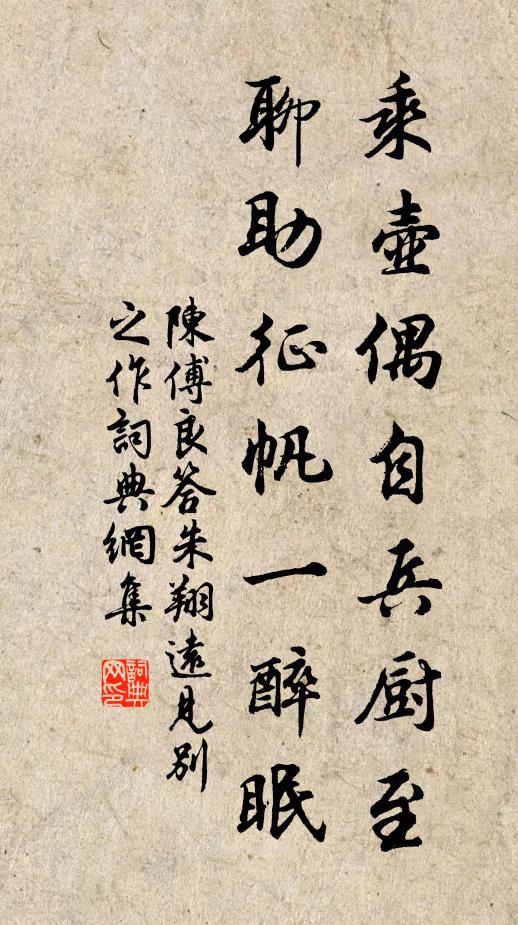 乘壺偶自兵厨至
聊助征帆一醉眠
陳傅良答朱翔遠見別
之作詞典網集
詞典
网印